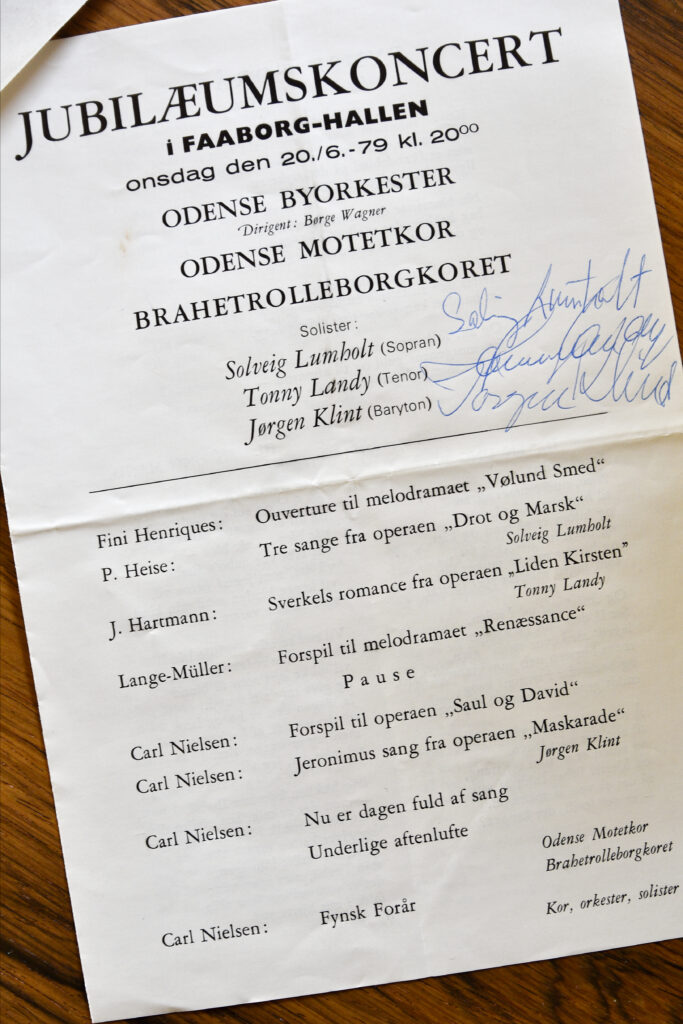 JUBILÆUMSKONCERT
i FAABORG-HALLEN
onsdag den 20./6.-79 kl. 20⁰⁰
ODENSE BYORKESTER
Dirigent: Børge Wagner
ODENSE MOTETKOR
BRAHETROLLEBORGKORET
Solister:
Solveig Lumholt (Sopran)
Tonny Landy (Tenor)
Jørgen Klint (Baryton)
Solveig Lumholt
Tonny Landy
Jørgen Klint
Fini Henriques: Ouverture til melodramaet „Vølund Smed“
P. Heise: Tre sange fra operaen „Drot og Marsk“
Solveig Lumholt
J. Hartmann: Sverkels romance fra operaen „Liden Kirsten”
Tonny Landy
Lange-Müller: Forspil til melodramaet „Renæssance“
Pause
Carl Nielsen: Forspil til operaen „Saul og David“
Carl Nielsen: Jeronimus sang fra operaen „Maskarade“
Jørgen Klint
Carl Nielsen: Nu er dagen fuld af sang
Underlige aftenlufte
Odense Motetkor
Brahetrolleborgkoret
Carl Nielsen: Fynsk Forår
Kor, orkester, solister